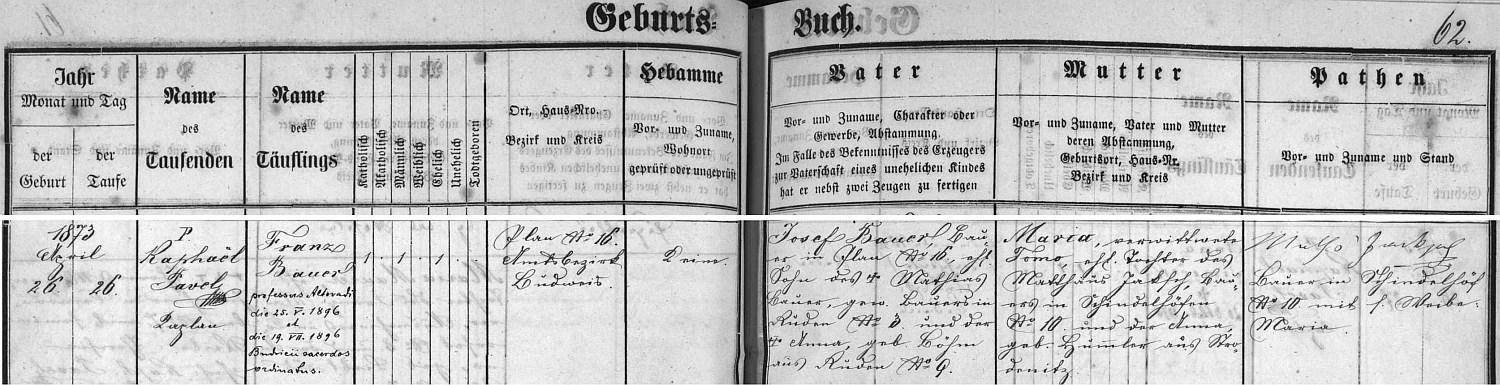 Geburts-Buch.
62.
Jahr
Monat und Tag
der Geburt
der Taufe
Name
des
Taufenden
Name
des
Täuflings
Katholisch
Akatholisch
Männlich
Weiblich
Ehelich
Unehelich
Todtgeboren
Ort, Haus-Nro.
Bezirk und Kreis
Hebamme
Vor- und Zuname,
Wohnort
geprüft oder ungeprüft
Vater
Vor- und Zuname, Charakter oder
Gewerbe, Abstammung.
Im Falle des Bekenntnisses des Erzeugers
zur Vaterschaft eines unehelichen Kindes
hat er nebst zwei Zeugen zu fertigen
Mutter
Vor- und Zuname, Vater und Mutter
deren Abstammung,
Geburtsort, Haus-Nr.
Bezirk und Kreis
Pathen
Vor- und Zuname und Stand
1873
April
26. 26.
P.
Raphaël
Pavel
Kaplan
Franz
Bauer
professus Altovadi
die 25. V. 1896
et
die 19. VII. 1896
Budvicii sacerdos
ordinatus.
1. 1. 1.
Plan No 16.
Amtsbezirk
Budweis.
Keine.
Josef Bauer, Bau-
er in Plan No 16, ehl.
Sohn des † Mathias
Bauer, gew. Bauers in
Ruden No 3. und der
† Anna, geb. Böhm
aus Ruden No 9.
Maria, verwittwete
Tomo, ehl. Tochter des
Matthäus Jaksch, Bau-
ers in Schindelhöfen
No 10. und der Anna,
geb. Hummler aus Stro-
denitz.
Bauer in Schindelhöf
No 10. mit s. Weibe
Maria.